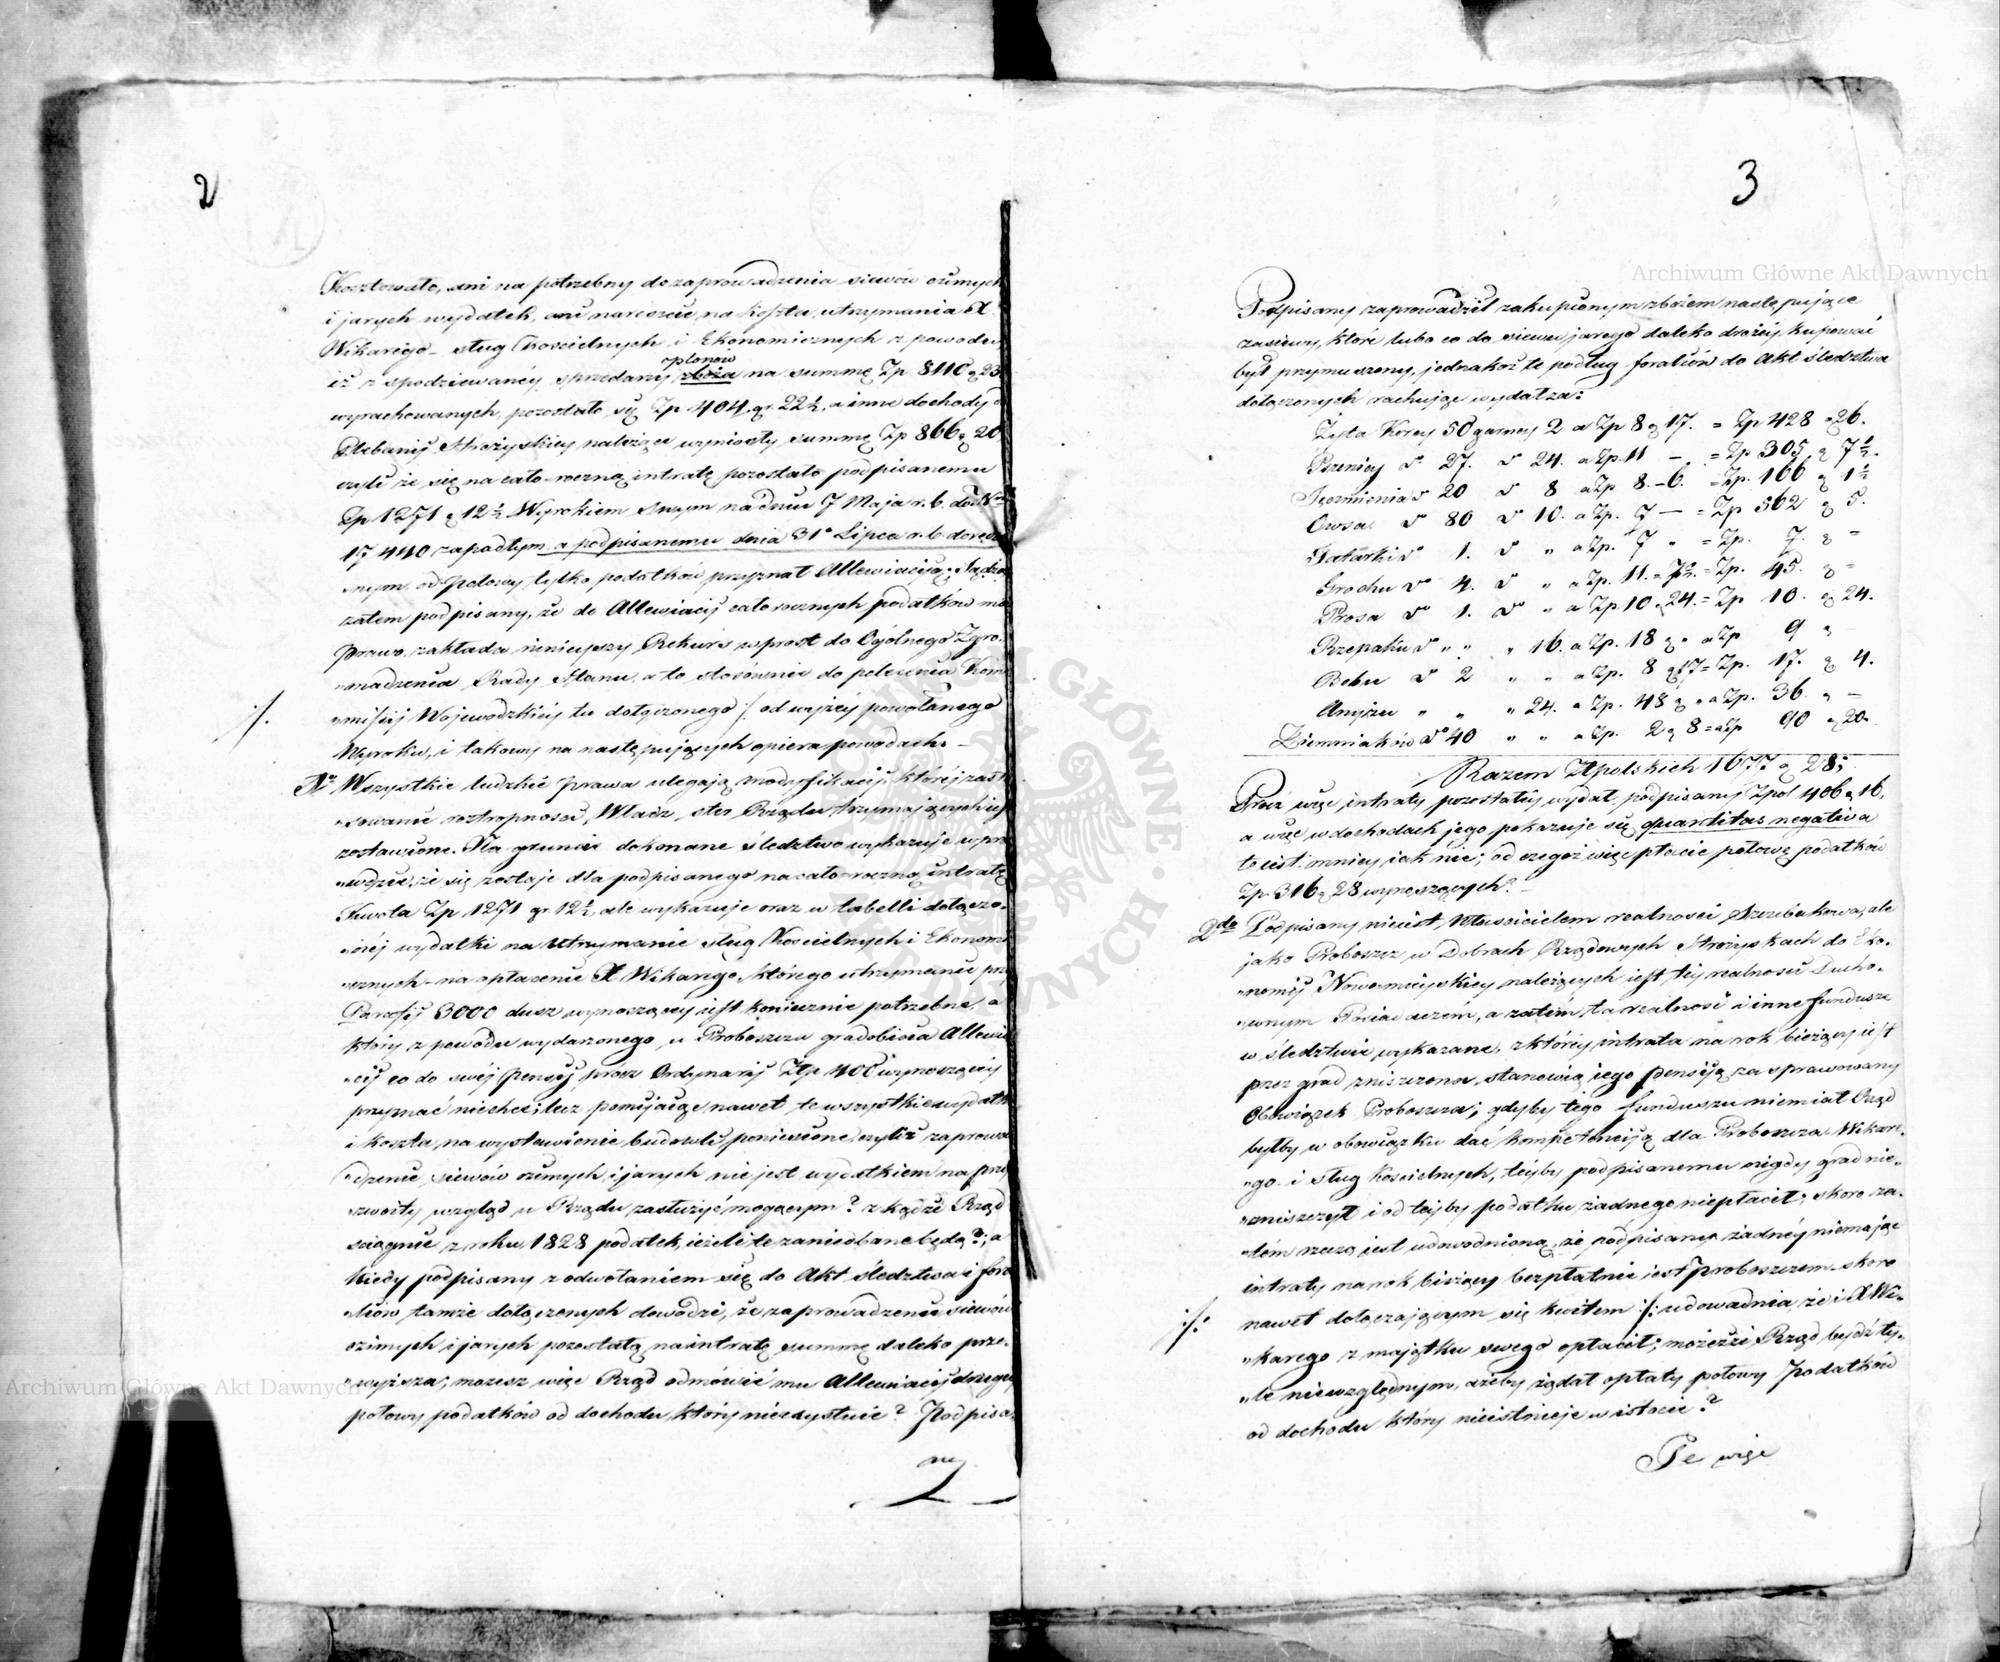 2
Kosztowało, ani na potrzebny do zaprowadzenia siewów ozimych
i jarych wydatek, ani nareszcie na koszta utrzymania X.
Wikarego – sług Kościelnych i Ekonomicznych z powodu
plonów
iż z spodziewanéy sprzedaży zboża na summę Zp 8110 g 23
wyrachowanych, pozostało się Zp 404 gr. 22½, a inne dochody
Plebanij Strożyskiey należące wyniosły summę Zp 866 g 20
czyli że się na cało-roczną intratę pozostało podpisanemu
Zp 1271 g 12½ Wyrokiem swym na dniu 7 Maja r. b. do Nru
17440 zapadłym a podpisanemu dnia 31o Lipca r. b. doręczo
„nym, od połowy tylko podatków przyznał Allewiacyją; Sądząc
zatem podpisany, że do Allewiacij cało rocznych podatków ma
prawo, zakłada ninieyszy Rekurs wprost do Ogólnego Zgro-
„madzenia Rady Stanu, a to stosównie do polecenia Kom
./. „missij Wojewodzkiéy tu dołączonego ./. od wyżéy powołanego
Wyroku, i takowy na następujących opiera powodach. –
1o Wszystkie ludzkie prawa ulegają modyfikacij, któréj zasto
„sowanie roztropności Władz, ster Rządu trzymających jest
zostawione. Na gruncie dokonane śledztwo wykazuje wpra
„wdzie, że się zostaje dla podpisanego na cało-roczną intratę
Kwota Zp 1271 gr. 12½, ale wykazuje oraz w tabelli dołączo-
„néj wydatki na utrzymanie sług Kościelnych i Ekonomi
„cznych – na opłacenie X. Wikarego, którego utrzymanie przy
Parafij 3000 dusz wynoszącey jest koniecznie potrzebne, a
który z powodu wydarzonego u Proboszcza gradobicia Allewia
„cij co do swéj pensij przez Ordynarij Ztp 400 wynoszącéy
przyznać niechce; lecz pomijając nawet te wszystkie wydatki
i koszta, na wystawienie budowli poniesione, czyliż zaprowa
„dzenie siewów ozimych i jarych nie jest wydatkiem na przy
„zwoity wzgląd u Rządu zasłużyć mogącym? z kądże Rząd
ściągnie z roku 1828 podatek, jeżeli te zaniedbane będą?; a
kiedy podpisany z odwołaniem się do Akt śledztwa i fora
„liów tamże dołączonych dowodzi, że zaprowadzenie siewów
ozimych i jarych pozostałą na intratę summę daleko prze-
„wyższa; możesz więc Rząd odmówić mu Allewiacij drugiey
połowy podatków od dochodu, który nieexystuie? Podpisa-
ny
3
Podpisany zaprowadził zakupionym zbożem następujące
zasiewy, które lubo co do siewu jarego daleko drożéj kupować
był przymuszony, jednakoż te podług foraliów do Akt śledztwa
dołączonych rachując wydał za:
Żyta Korcy 50 garncy 2 a Zp 8 g 17. = Zp 428 g 26.
Pszenicy do 27. do 24. a Zp. 11 – = Zp 305 g 7½.
Jęczmienia do 20 do 8 a Zp 8. – 6. = Zp. 166 g 1½
Owsa do 80 do 10. a Zp. 7 – = Zp 562 g 5.
Tatarki do 1. do „ a Zp. 7 „ = Zp. 7. g –
Grochu do 4. do „ a Zp. 11. = 7½. = Zp. 45. g –
Prosa do 1. do „ a Zp 10 g 24. = Zp 10. g 24.
Rzepaku do „ „ „ 16. a Zp. 18 g „ a Zp 9 g –
Bobu do 2 „ „ a Zp. 8 g 17 = Zp. 17. g 4.
Anyżu „ „ „ 24. a Zp. 48 g „ a Zp. 36. „ –
Ziemniaków do 40 „ „ a Zp. 2 g 8 = a Zp 90 g 20.
Razem Ztpolskich 1677. g 28;
Procz więc intraty pozostałéy wydał podpisany Zpol 406 g 16,
a więc w dochodach jego pokazuje się quantitas negativa
to iest: mniey jak nic; od czegoż więc płacić połowę podatków
Zp. 316 g 28 wynoszących? –
2do Podpisany nieiest Właścicielem realności Szczubakowa, ale
jako Proboszcz w Dobrach Rządowych Strożyskach do Eko-
„nomij Nowomieyskiey należących jest téy realności Ducho-
„wnym Posiadaczém, a zatém, ta realność i inne fundusze
w śledztwie wykazane, z któréy intrata na rok bieżący jest
przez grad zniszczona, stanowią jego pensiją za sprawowany
Obowiązek Proboszcza; gdyby tego funduszu niemiał Rząd
byłby w obowiązku dać kompetenciją dla Proboszcza Wikare-
„go i sług Kościelnych, téyby podpisanemu nigdy grad nie-
„zniszczył i od téyby podatku żadnego niepłacił; skoro za-
„tém rzeczą jest udowodnioną, że podpisany żadnéy niemając
intraty na rok bieżący bezpłatnie iest Proboszczem – skoro
./. nawet dołączającym się kwitem ./. udowadnia że i X Wi-
„karego z majątku swego opłacił; możeżże Rząd bydź ty-
„le niewzględnym, ażeby żądał opłaty połowy Podatków
od dochodu który nieistnieje w istocie?
Te więc
Archiwum Główne Akt Dawnych
Archiwum Główne Akt Dawnych